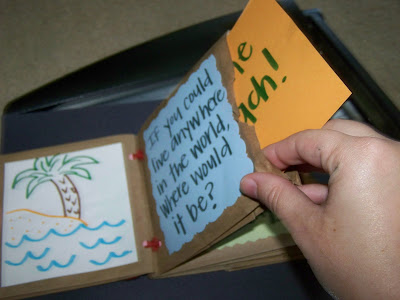 If you could
live anywhere
in the world,
where would
it be?
ach!